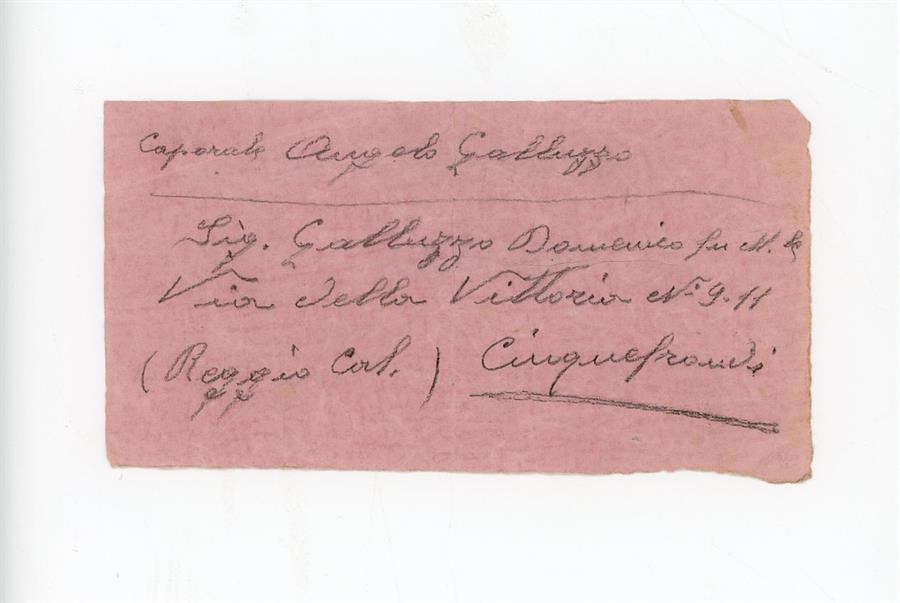 Caporale Angelo Galluzzo
Sig. Galluzzo Domenico fu M. le
Via della Vittoria N° 9-11
(Reggio Cal.) Cinquefrondi